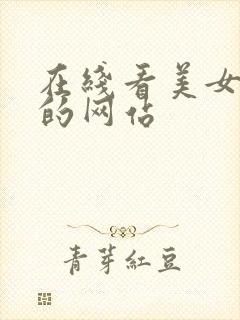 在线看美女
的网站
青芽红豆